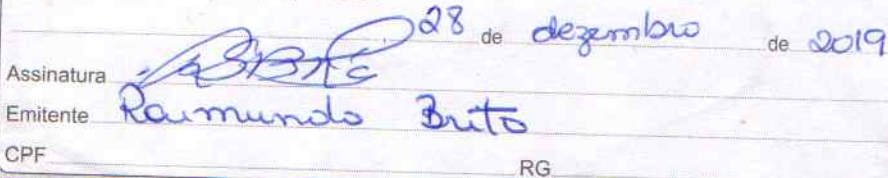 28 de dezembro de 2019
Assinatura
Emitente Raimundo Brito
CPF RG